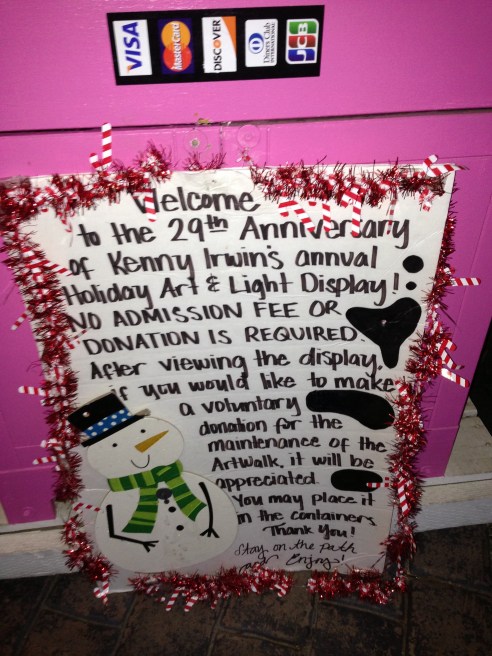 VISA
MasterCard
DISCOVER
Diners Club
INTERNATIONAL
JCB
Welcome
to the 29th Anniversary
of Kenny Irwin's annual
Holiday Art & Light Display!
NO ADMISSION FEE OR
DONATION IS REQUIRED.
After viewing the display,
if you would like to make
a voluntary
donation for the
maintenance of the
Artwalk, it will be
appreciated.
You may place it
in the containers
Thank You!
Stay on the path
Enjoy!